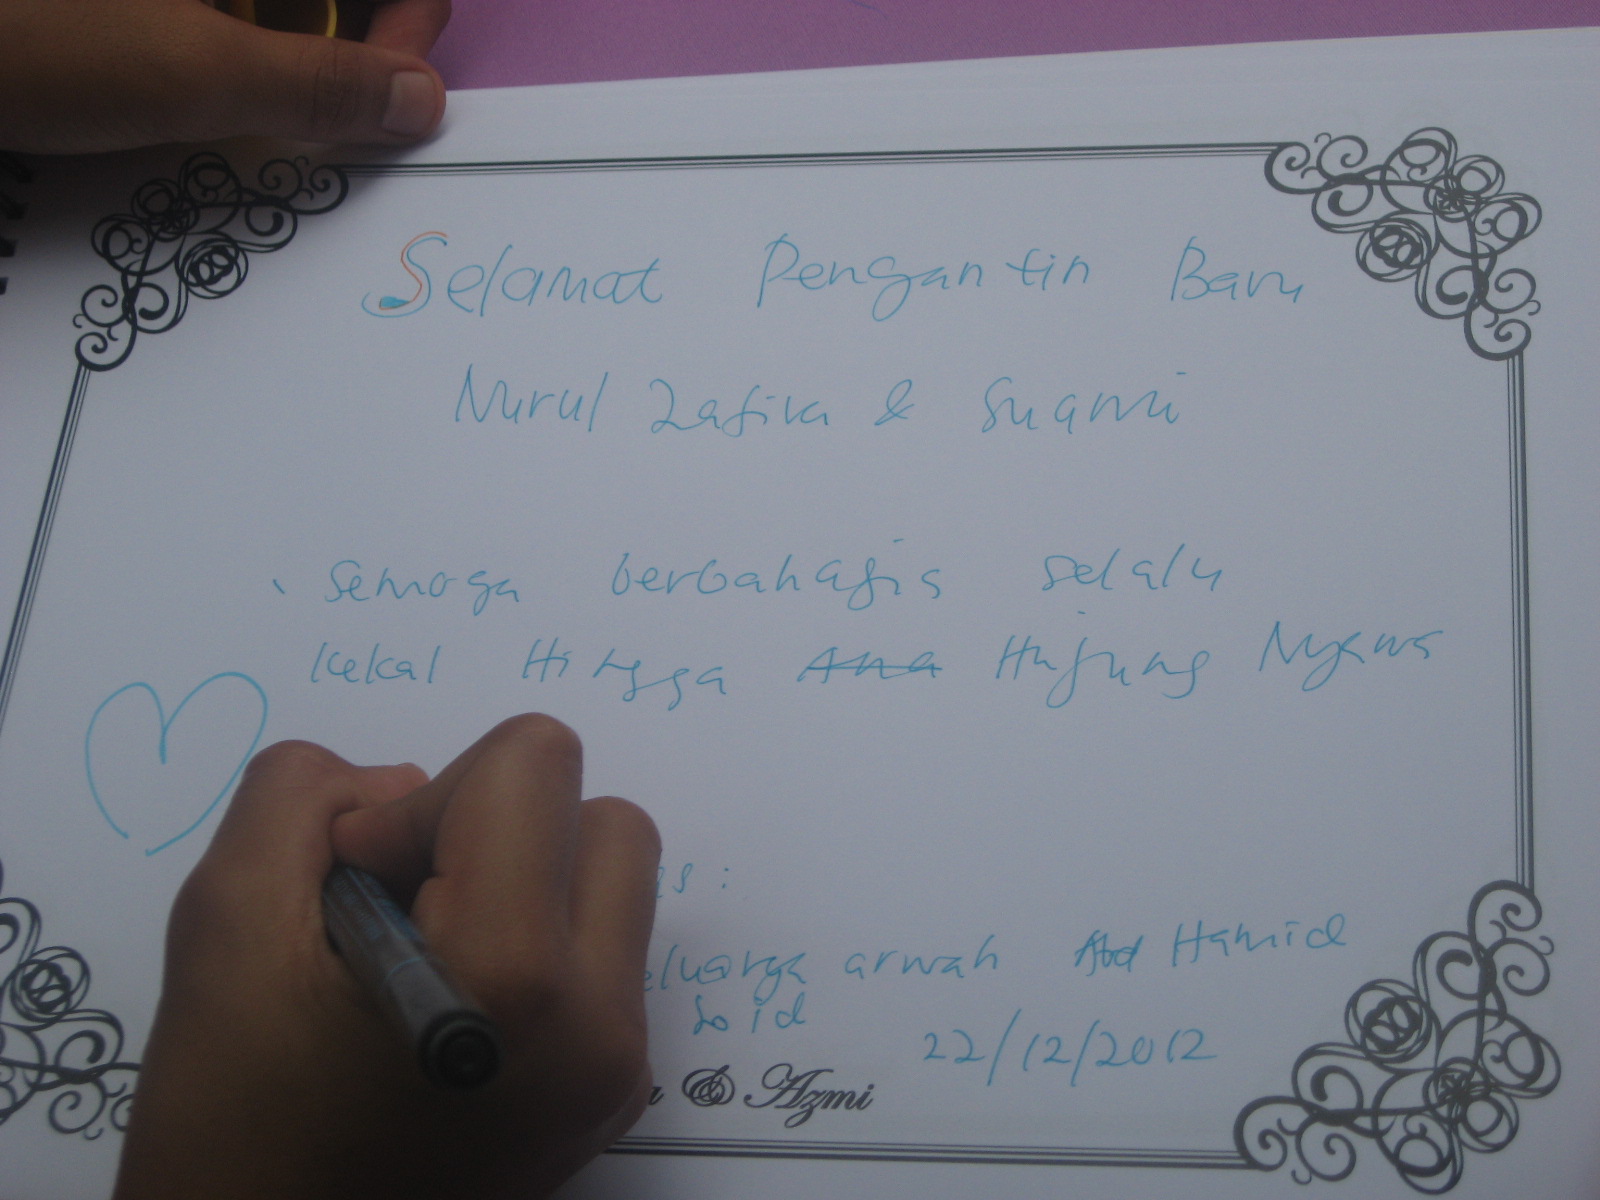 Selamat Pengantin Baru
Nurul Zafira & Suami
Semoga berbahagia selalu
kekal Hingga Hujung Nyawa
as :
eluarga arwah Abd Hamid
Said
22/12/2012
a & Azmi